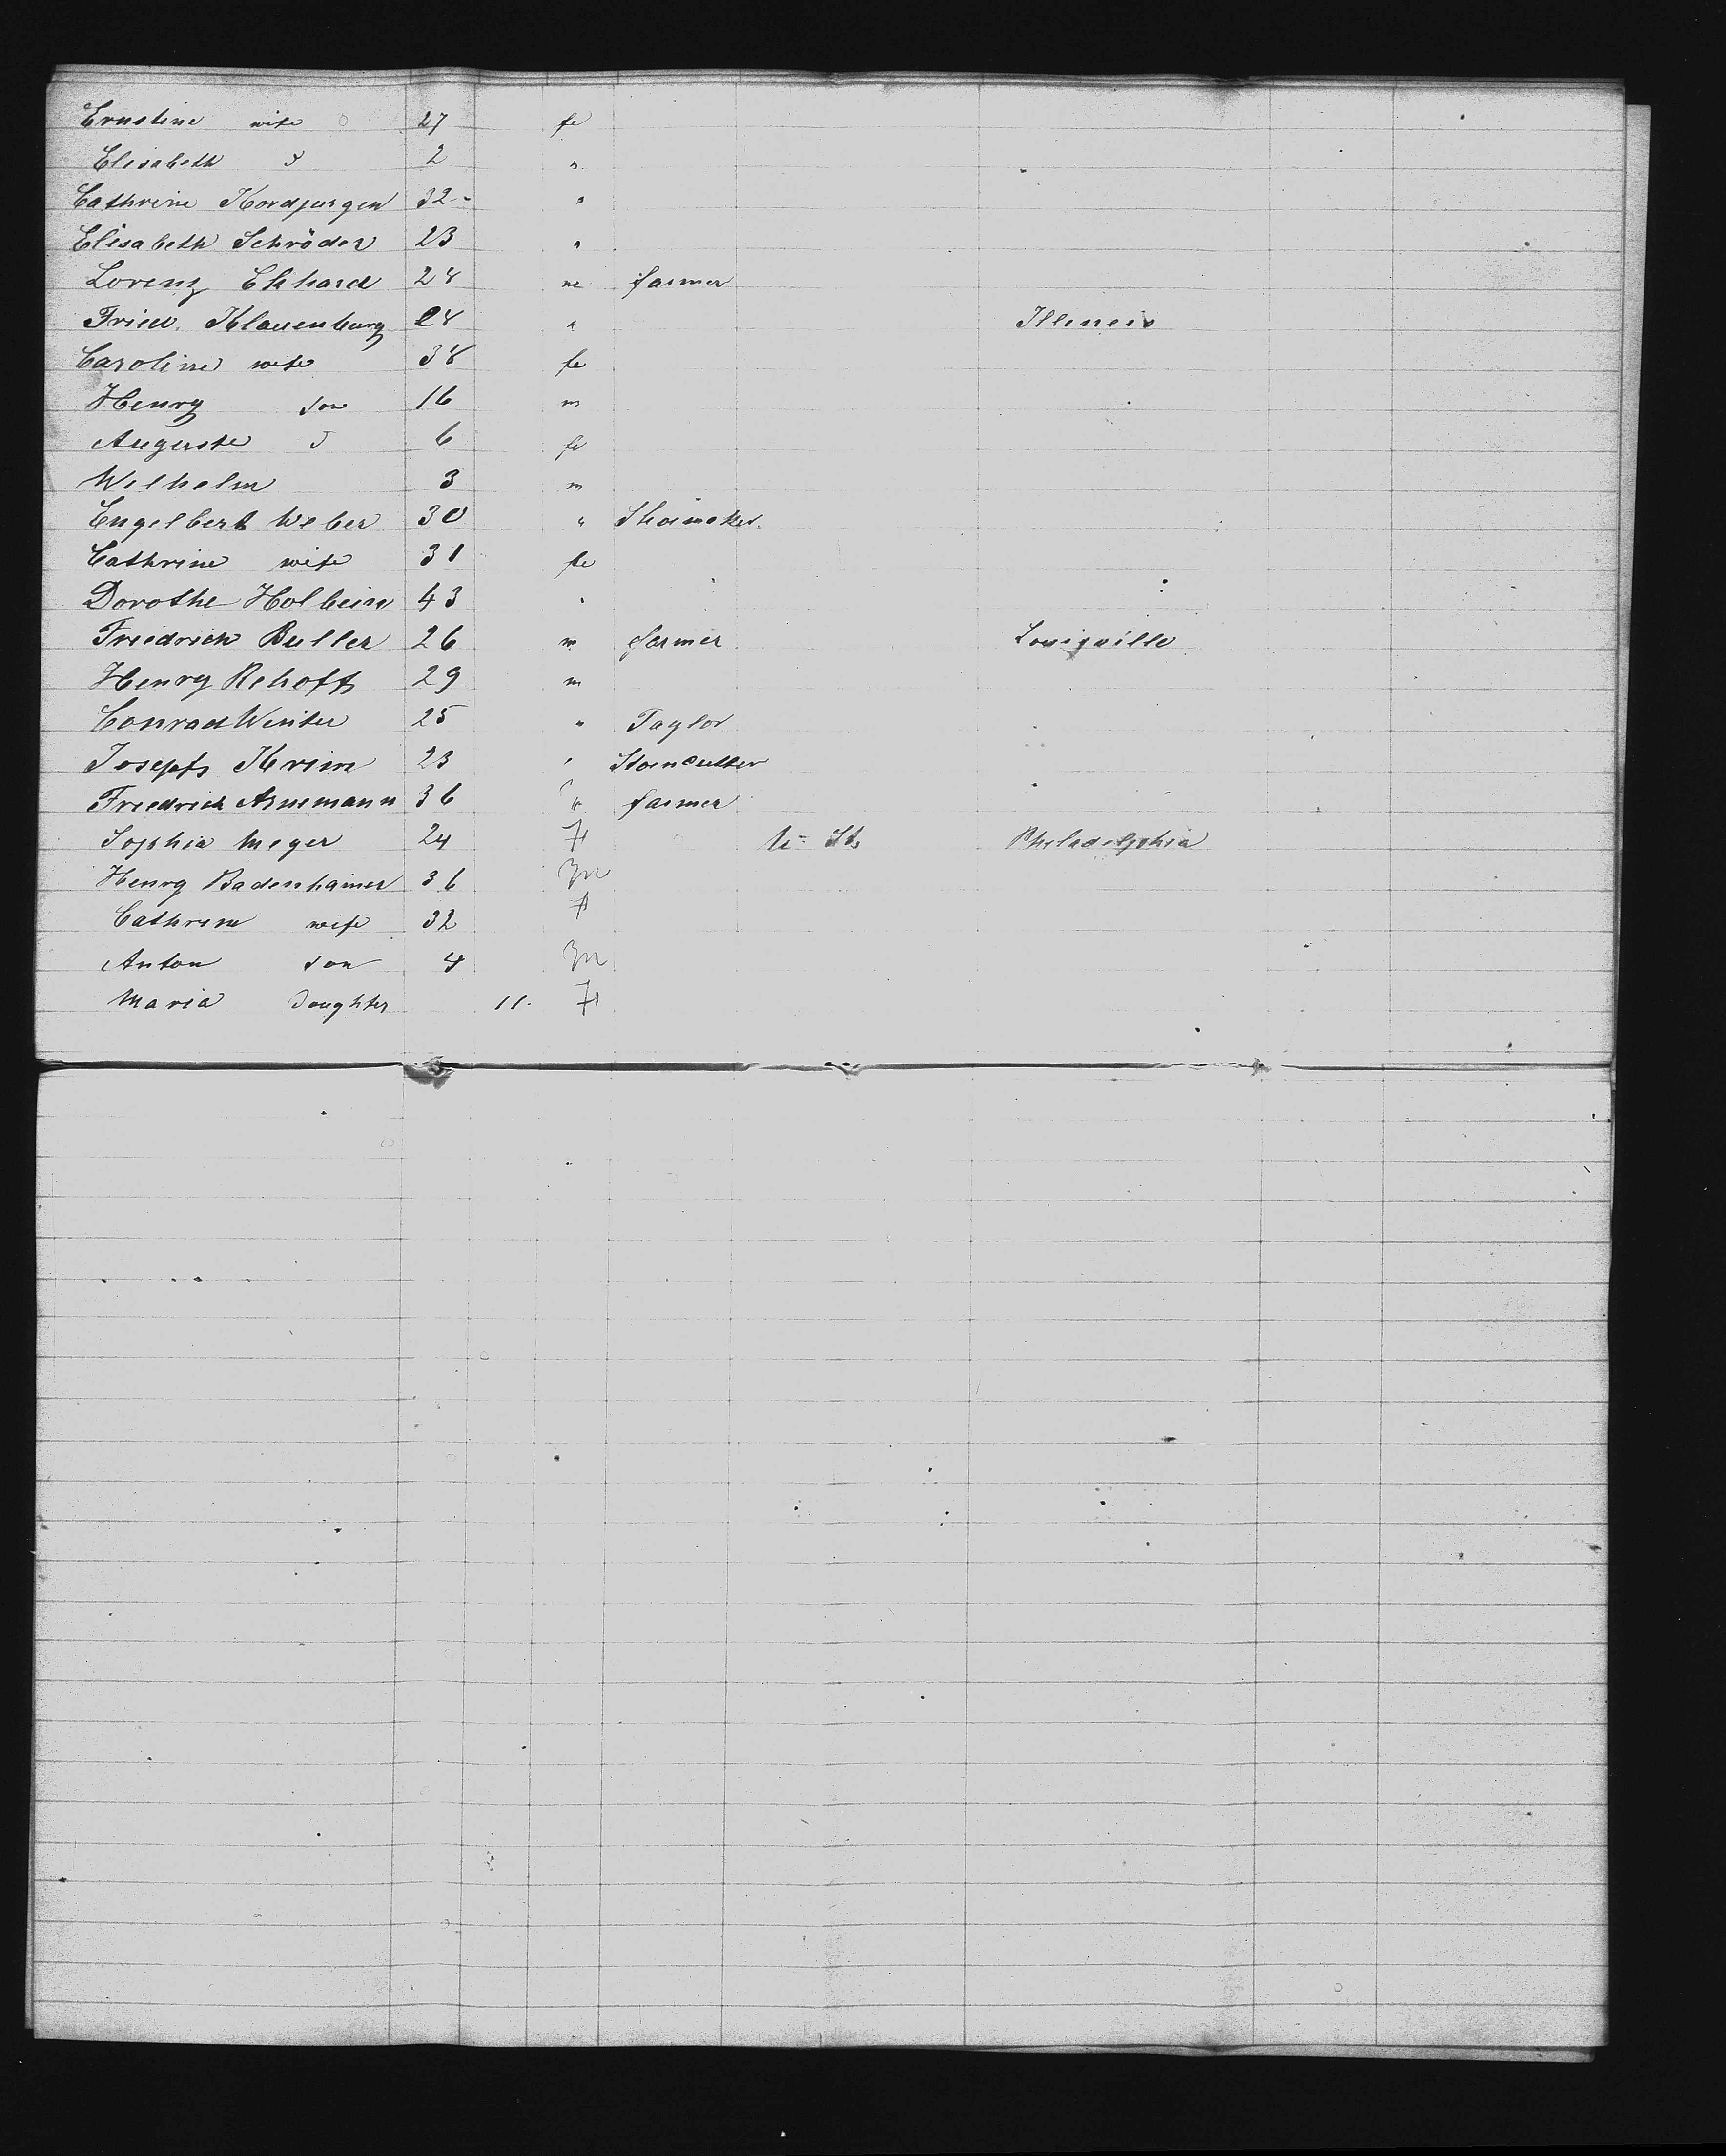 Ernstine wife 27 fe
Elisabeth d 2 "
Cathrine Kordjurgen 32 "
Elisabeth Schröder 23 "
Lorenz Ekhard 28 m farmer
Fried. Klauenburg 28 " Illineis
Caroline wife 38 fe
Henry son 16 m
Auguste d 6 fe
Wilhelm 3 m
Engelbert Weber 30 " Shoimaker
Cathrine wife 31 fe
Dorothe Holbein 43 "
Friedrich Buller 26 m farmer Louisville
Henry Rehoff 29 m
Conrad Winter 25 " Taylor
Joseph Krim 23 " Stoncutter
Friedrich Arnemann 36 " farmer
Sophia Meyer 24 F U. St. Philadelphia
Henry Badenhamer 36 M
Cathrine wife 32 F
Anton son 4 M
Maria Doughter 11. F